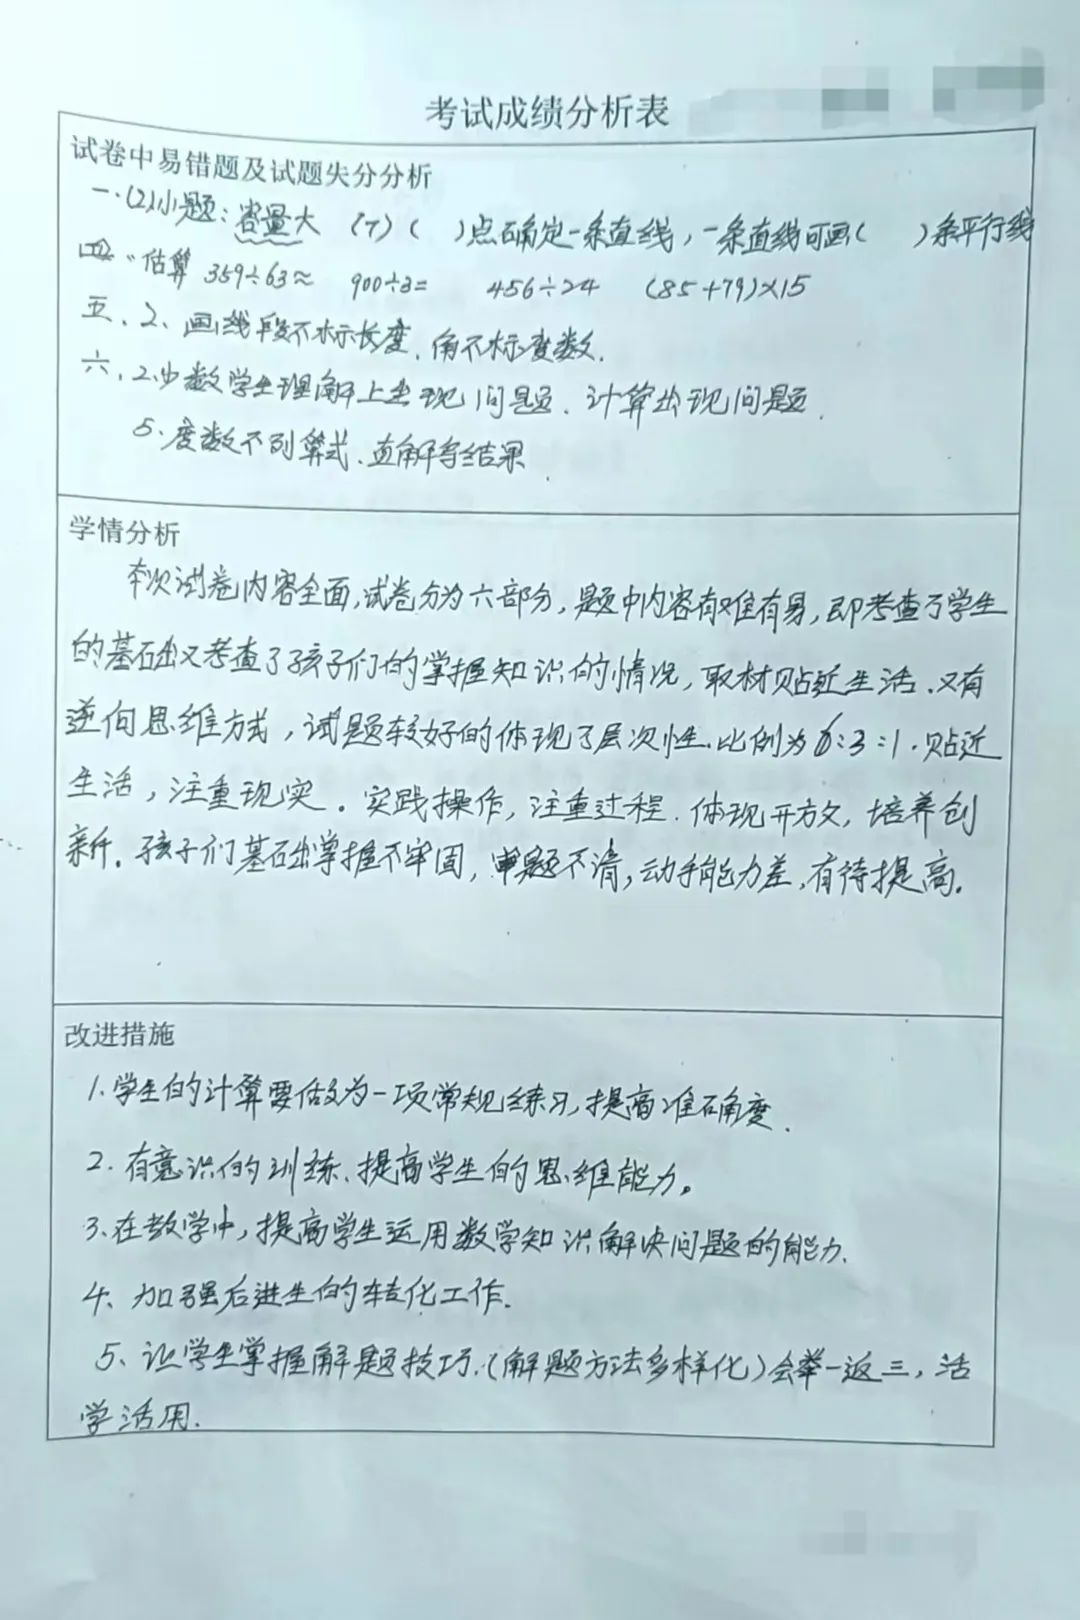 考试成绩分析表
试卷中易错题及试题失分分析
一.(2)小题：容量大 (7) ( )点确定一条直线，一条直线可画( )条平行线
四、估算 359÷63≈ 900÷3= 456÷24 (85+79)×15
五、2、画线段不标长度、角不标度数.
六、2.少数学生理解上出现问题、计算出现问题.
5.度数不列算式、直解写结果
学情分析
本次试卷内容全面,试卷分为六部分，题中内容有难有易，即考查了学生
的基础又考查了孩子们的掌握知识的情况，取材贴近生活.又有
逆向思维方式，试题较好的体现了层次性.比例为6:3:1.贴近
生活，注重现实。实践操作，注重过程.体现开放，培养创
新.孩子们基础掌握不牢固，审题不清，动手能力差，有待提高.
改进措施
1.学生的计算要做为一项常规练习，提高准确度.
2.有意识的训练、提高学生的思维能力。
3.在教学中，提高学生运用数学知识解决问题的能力.
4、加强后进生的转化工作.
5、让学生掌握解题技巧.(解题方法多样化)会举一返三，活
学活用.